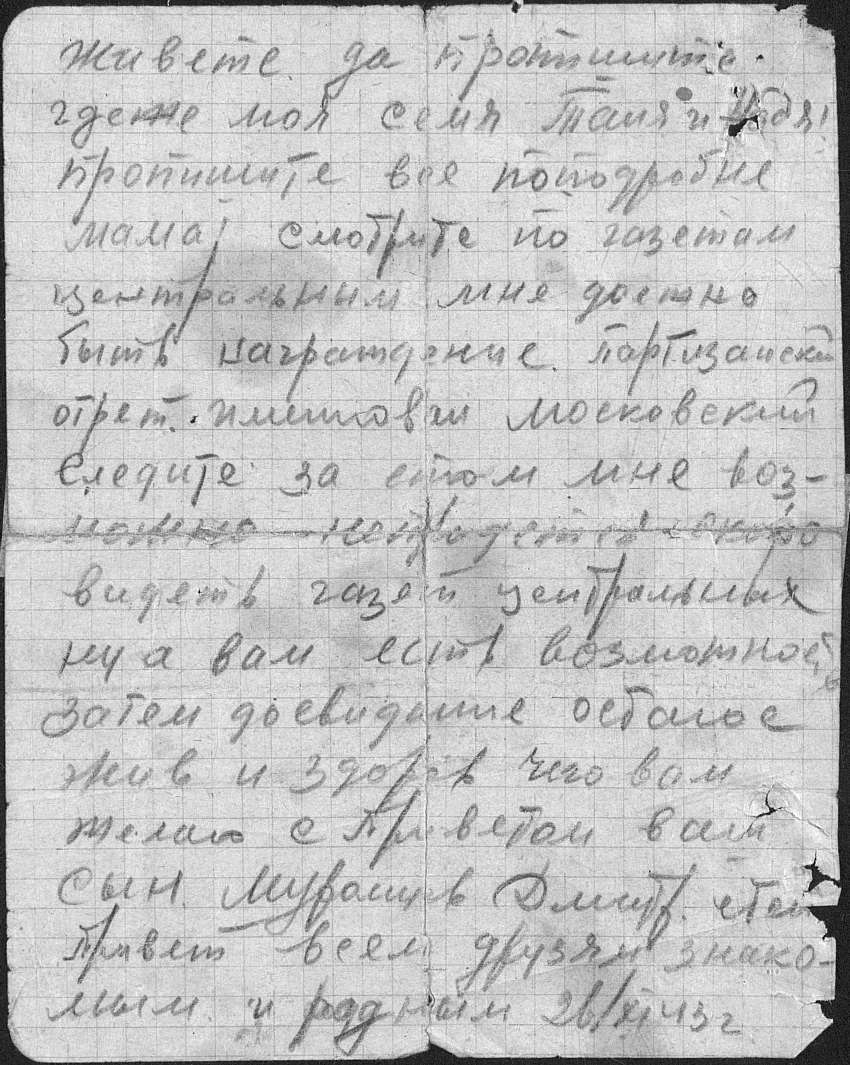 живете да пропишите.
где же моя семя Таня и Надя!
пропишите все поподробне
мама! смотрите по газетам
центральным мне должно
быть награждение. партизанский
отрет. Московский
следите за етом мне воз-
можно непридется скоро
видеть газет центральных
ну а вам есть возможность
затем досвидание осталос
жив и здоров чего вам
желаю с приветом ваш
сын. Дмитр.
привет всем друзям знако-
мым. и родным 26/XI 43 г